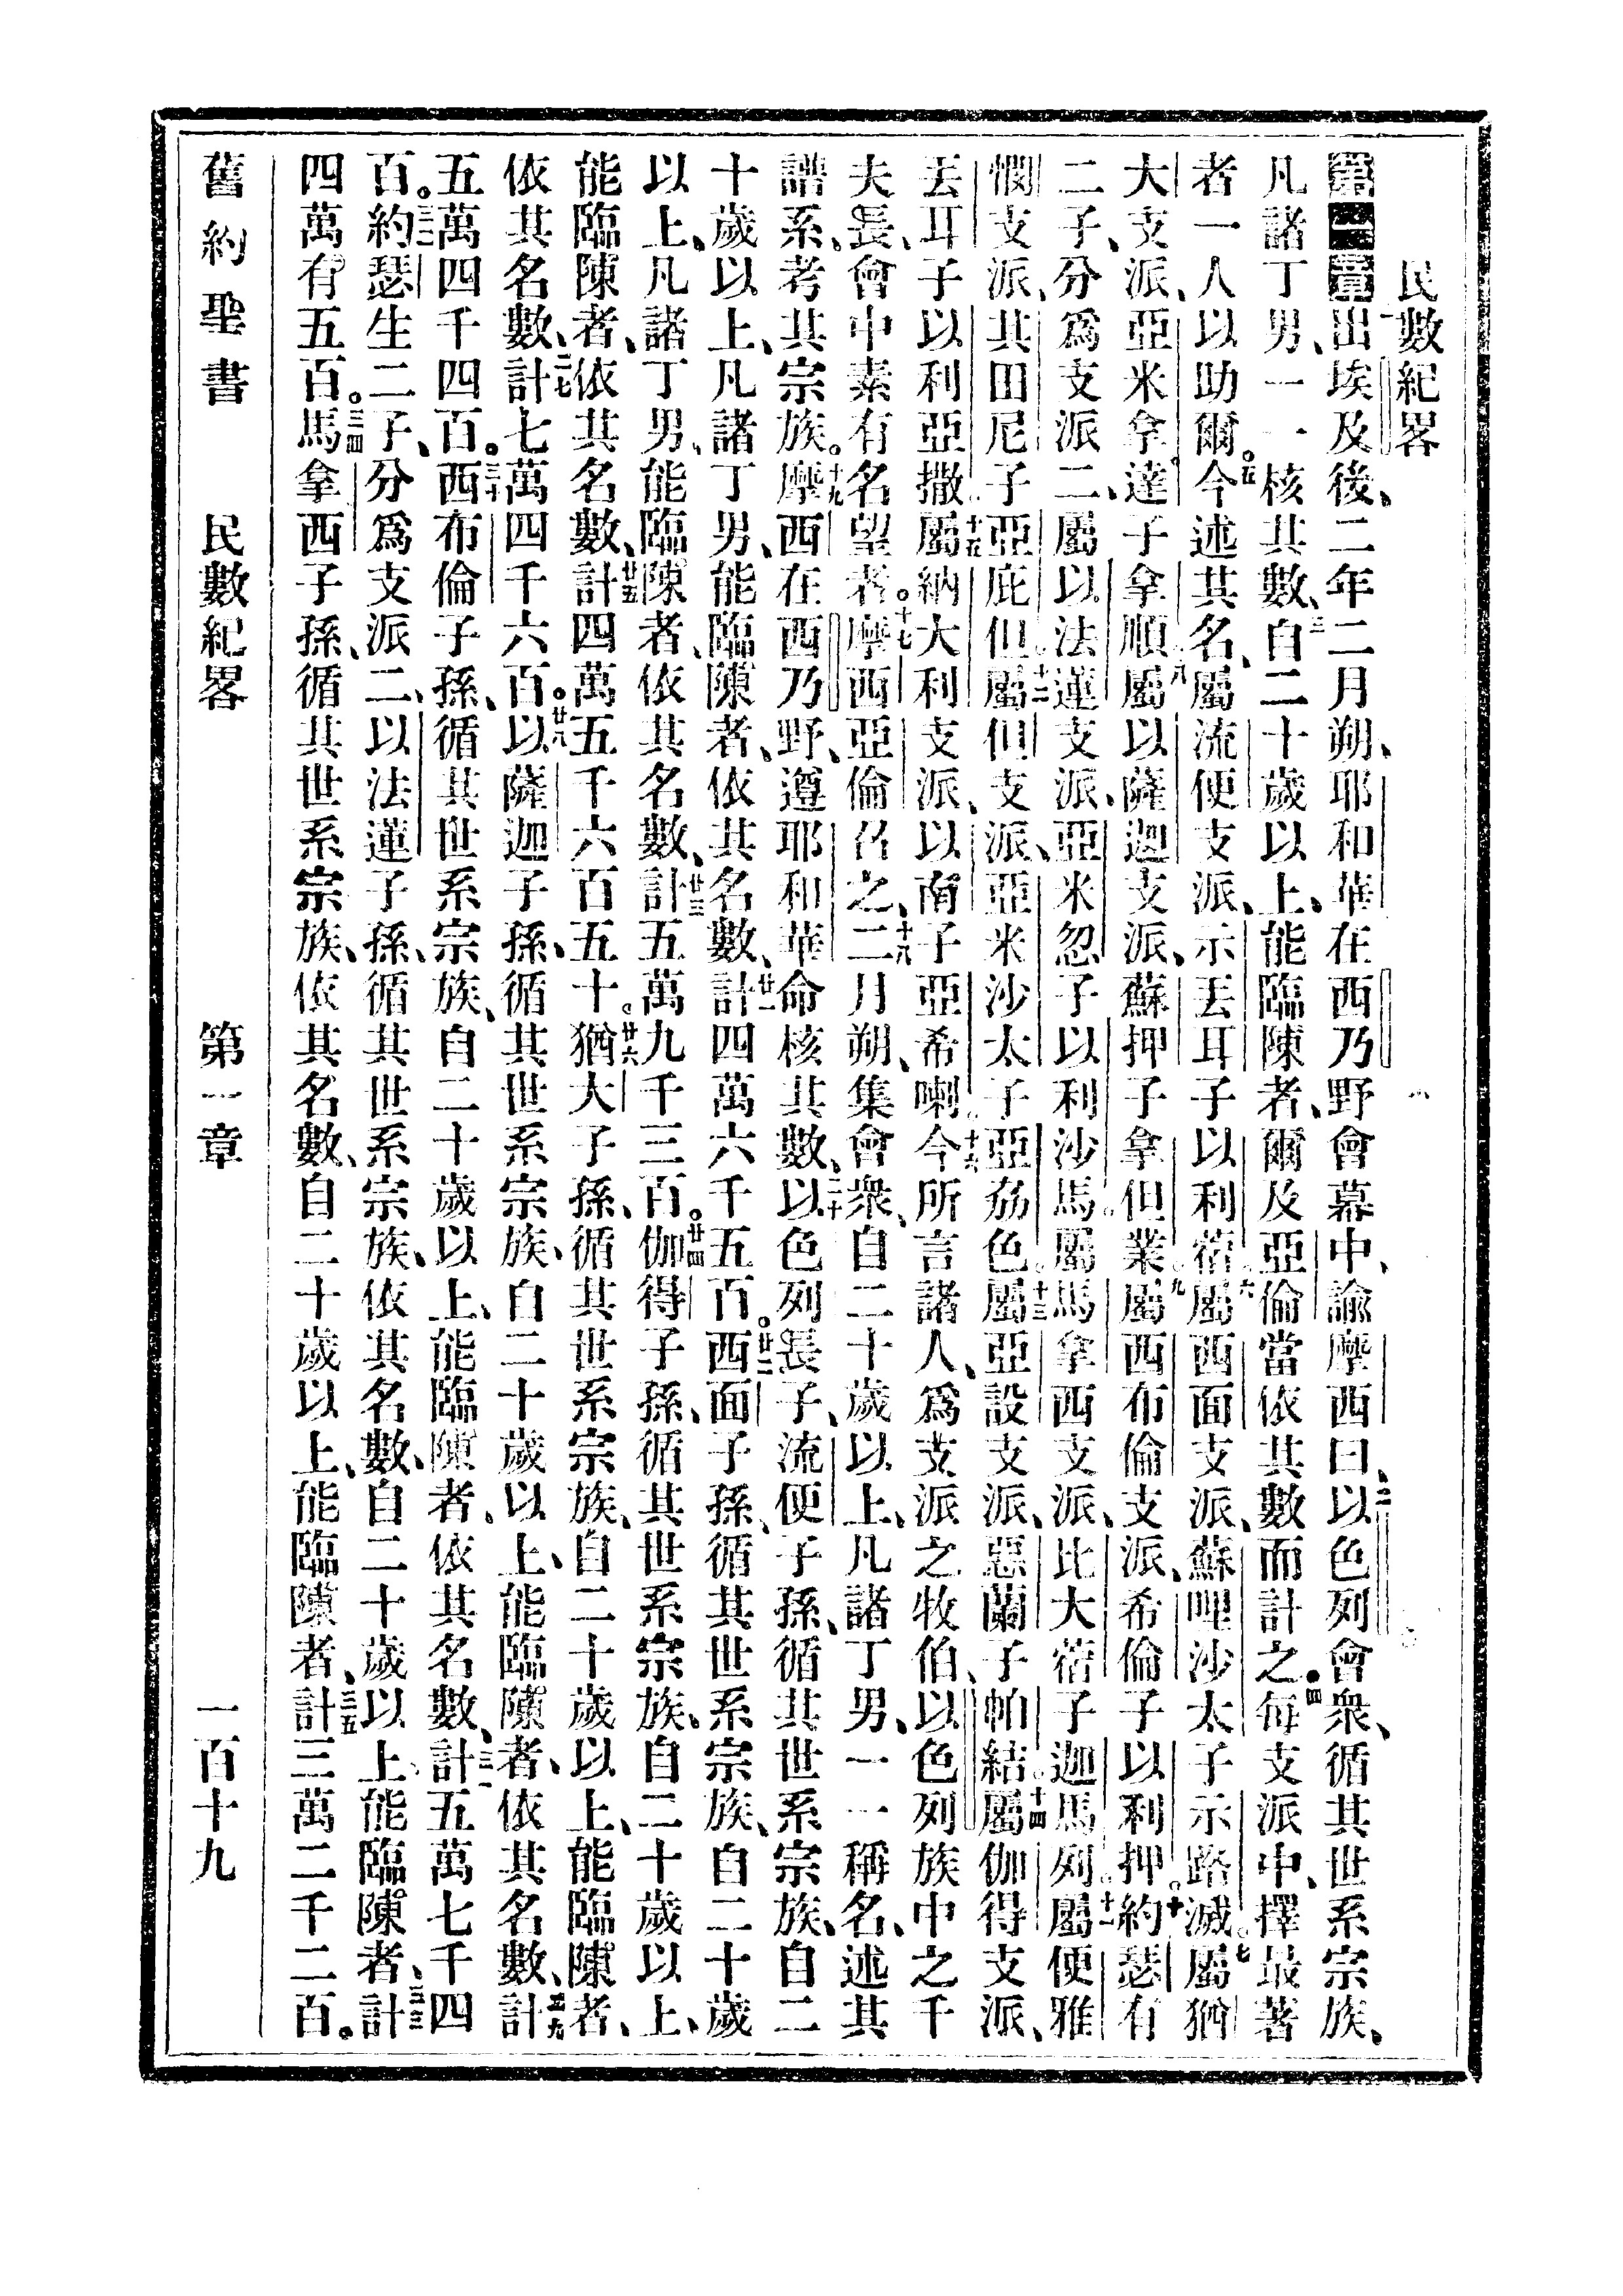 民數紀畧
第一章出埃及後、二年二月朔、耶和華在西乃野會幕中、諭摩西曰、二以色列會衆、循其世系宗族、
凡諸丁男、一一核其數、三自二十歲以上、能臨陳者、爾及亞倫當依其數而計之。四每支派中、擇最著
者一人以助爾。五今述其名、屬流便支派、示丟耳子以利蓿。六屬西面支派、蘇哩沙太子示路滅。七屬猶
大支派、亞米拿達子拿順。八屬以薩迦支派、蘇押子拿但業。九屬西布倫支派、希倫子以利押。十約瑟有
二子、分爲支派二、屬以法蓮支派、亞米忽子以利沙馬。屬馬拿西支派、比大蓿子迦馬列。十一屬便雅
憫支派、其田尼子亞庇但。十二屬但支派、亞米沙太子亞茘色。十三屬亞設支派、惡蘭子帕結。十四屬伽得支派、
丟耳子以利亞撒。十五屬納大利支派、以南子亞希喇。十六今所言諸人、爲支派之牧伯、以色列族中之千
夫長、會中素有名望者。十七摩西亞倫召之、十八二月朔、集會衆、自二十歲以上、凡諸丁男、一一稱名、述其
譜系、考其宗族。十九摩西在西乃野、遵耶和華命核其數、二十以色列長子、流便子孫、循其世系宗族、自二
十歲以上、凡諸丁男、能臨陳者、依其名數、廿一計四萬六千五百。廿二西面子孫、循其世系宗族、自二十歲
以上、凡諸丁男、能臨陳者、依其名數、廿三計五萬九千三百。廿四伽得子孫、循其世系宗族、自二十歲以上、
能臨陳者、依其名數、廿五計四萬五千六百五十。廿六猶大子孫、循其世系宗族、自二十歲以上、能臨陳者、
依其名數、二七計七萬四千六百。廿八以薩迦子孫、循其世系宗族、自二十歲以上、能臨陳者、依其名數、廿九計
五萬四千四百。三十西布倫子孫、循其世系宗族、自二十歲以上、能臨陳者、依其名數、三一計五萬七千四
百。三二約瑟生二子、分爲支派二、以法蓮子孫、循其世系宗族、依其名數、自二十歲以上、能臨陳者、三三計
四萬有五百。三四馬拿西子孫、循其世系宗族、依其名數、自二十歲以上、能臨陳者、三五計三萬二千二百。
舊約聖書 民數紀畧 第一章 一百十九